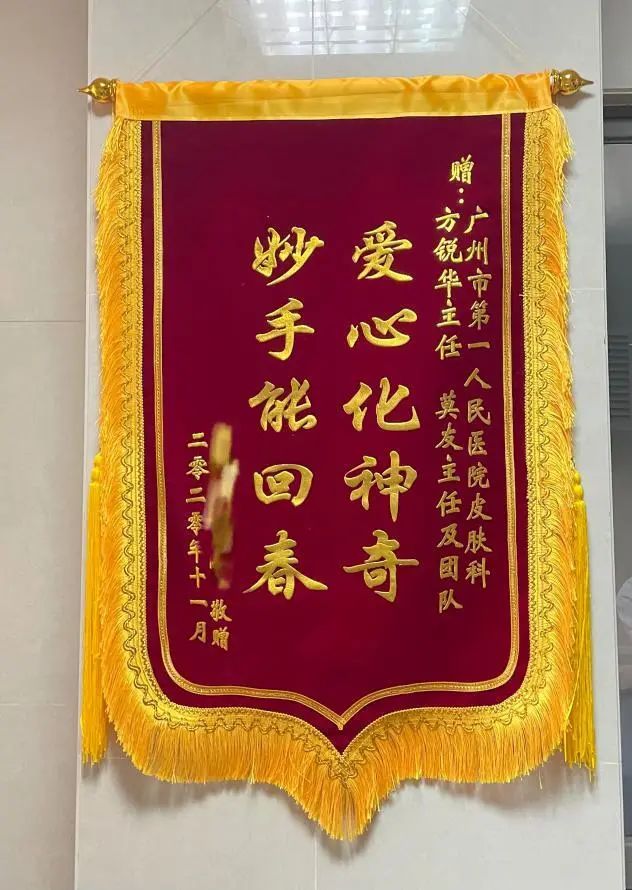 赠：广州市第一人民医院皮肤科
方锐华主任 莫友主任及团队
爱心化神奇
妙手能回春
敬赠
二零二零年十一月